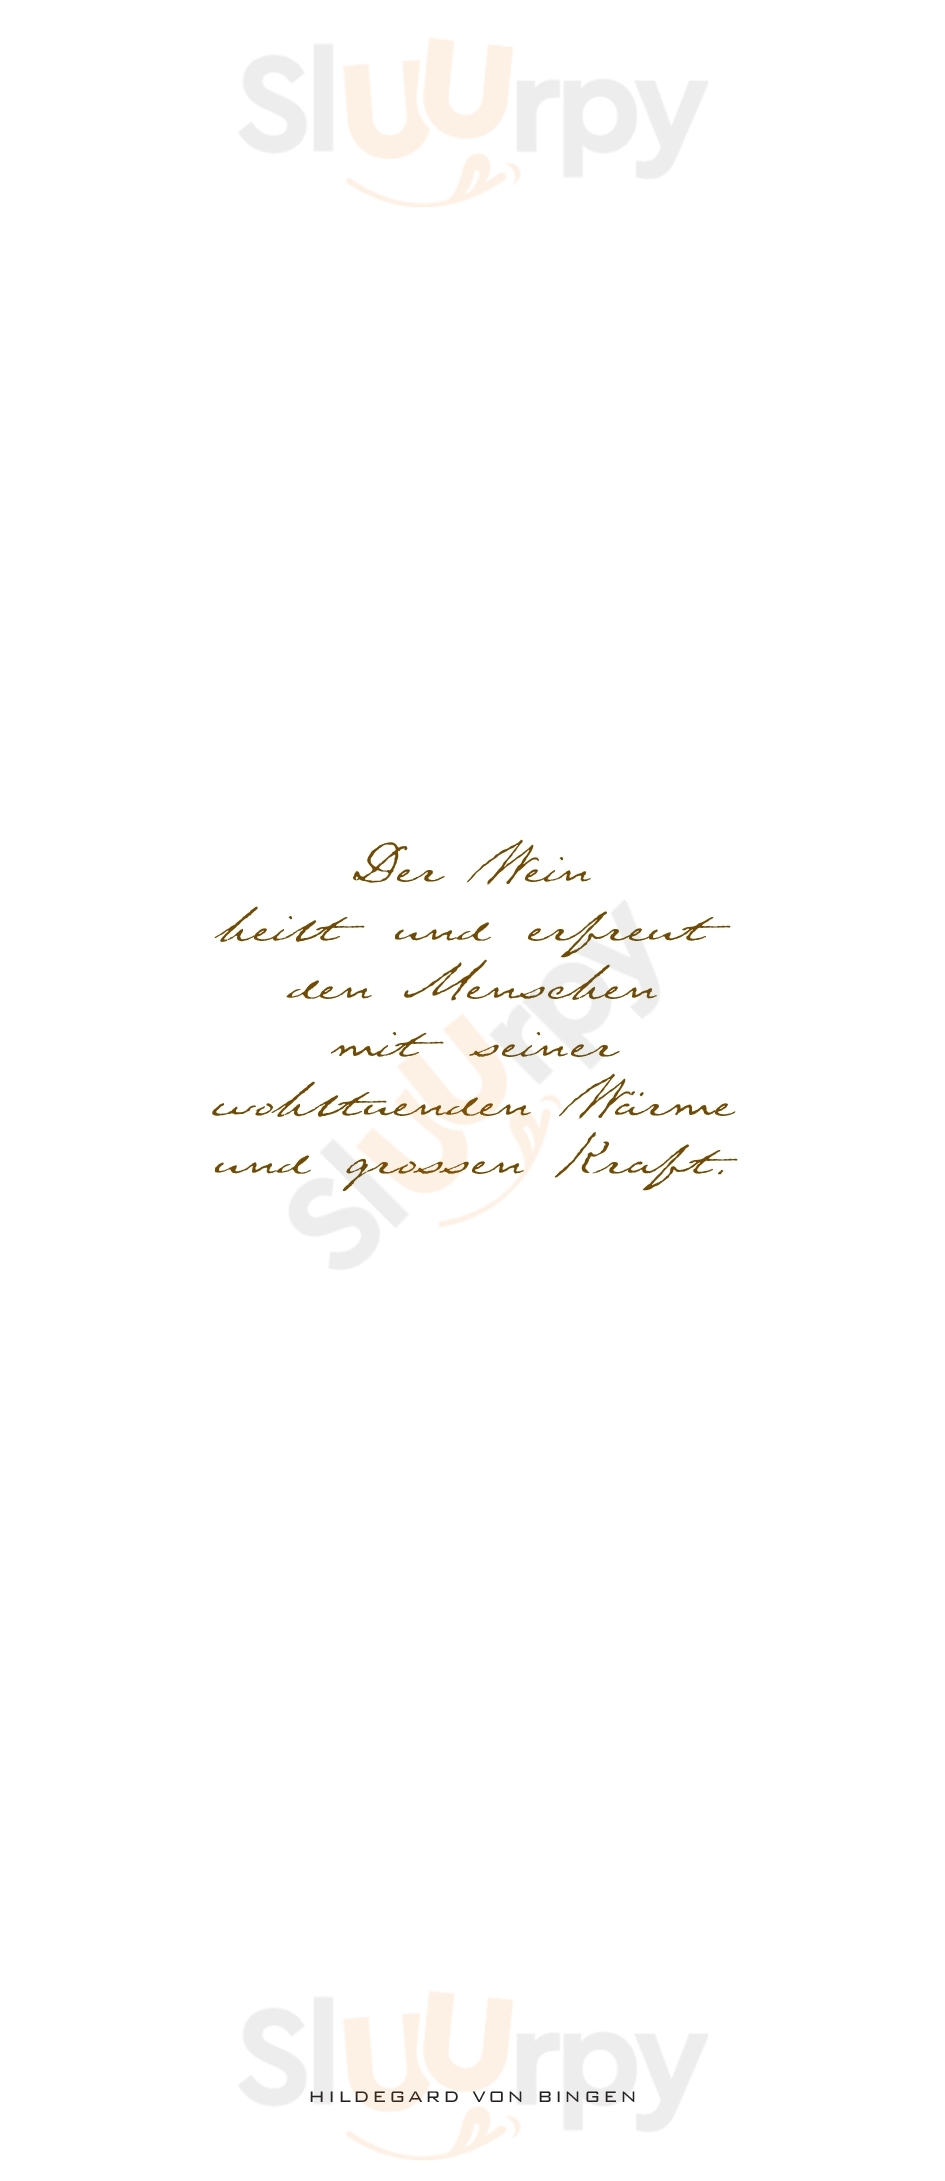 Sluurpy
Der Wein
heilt und erfreut
den Menschen
mit seiner
wohltuenden Wärme
und grossen Kraft.
Sluurpy
Sluurpy
HILDEGARD VON BINGEN